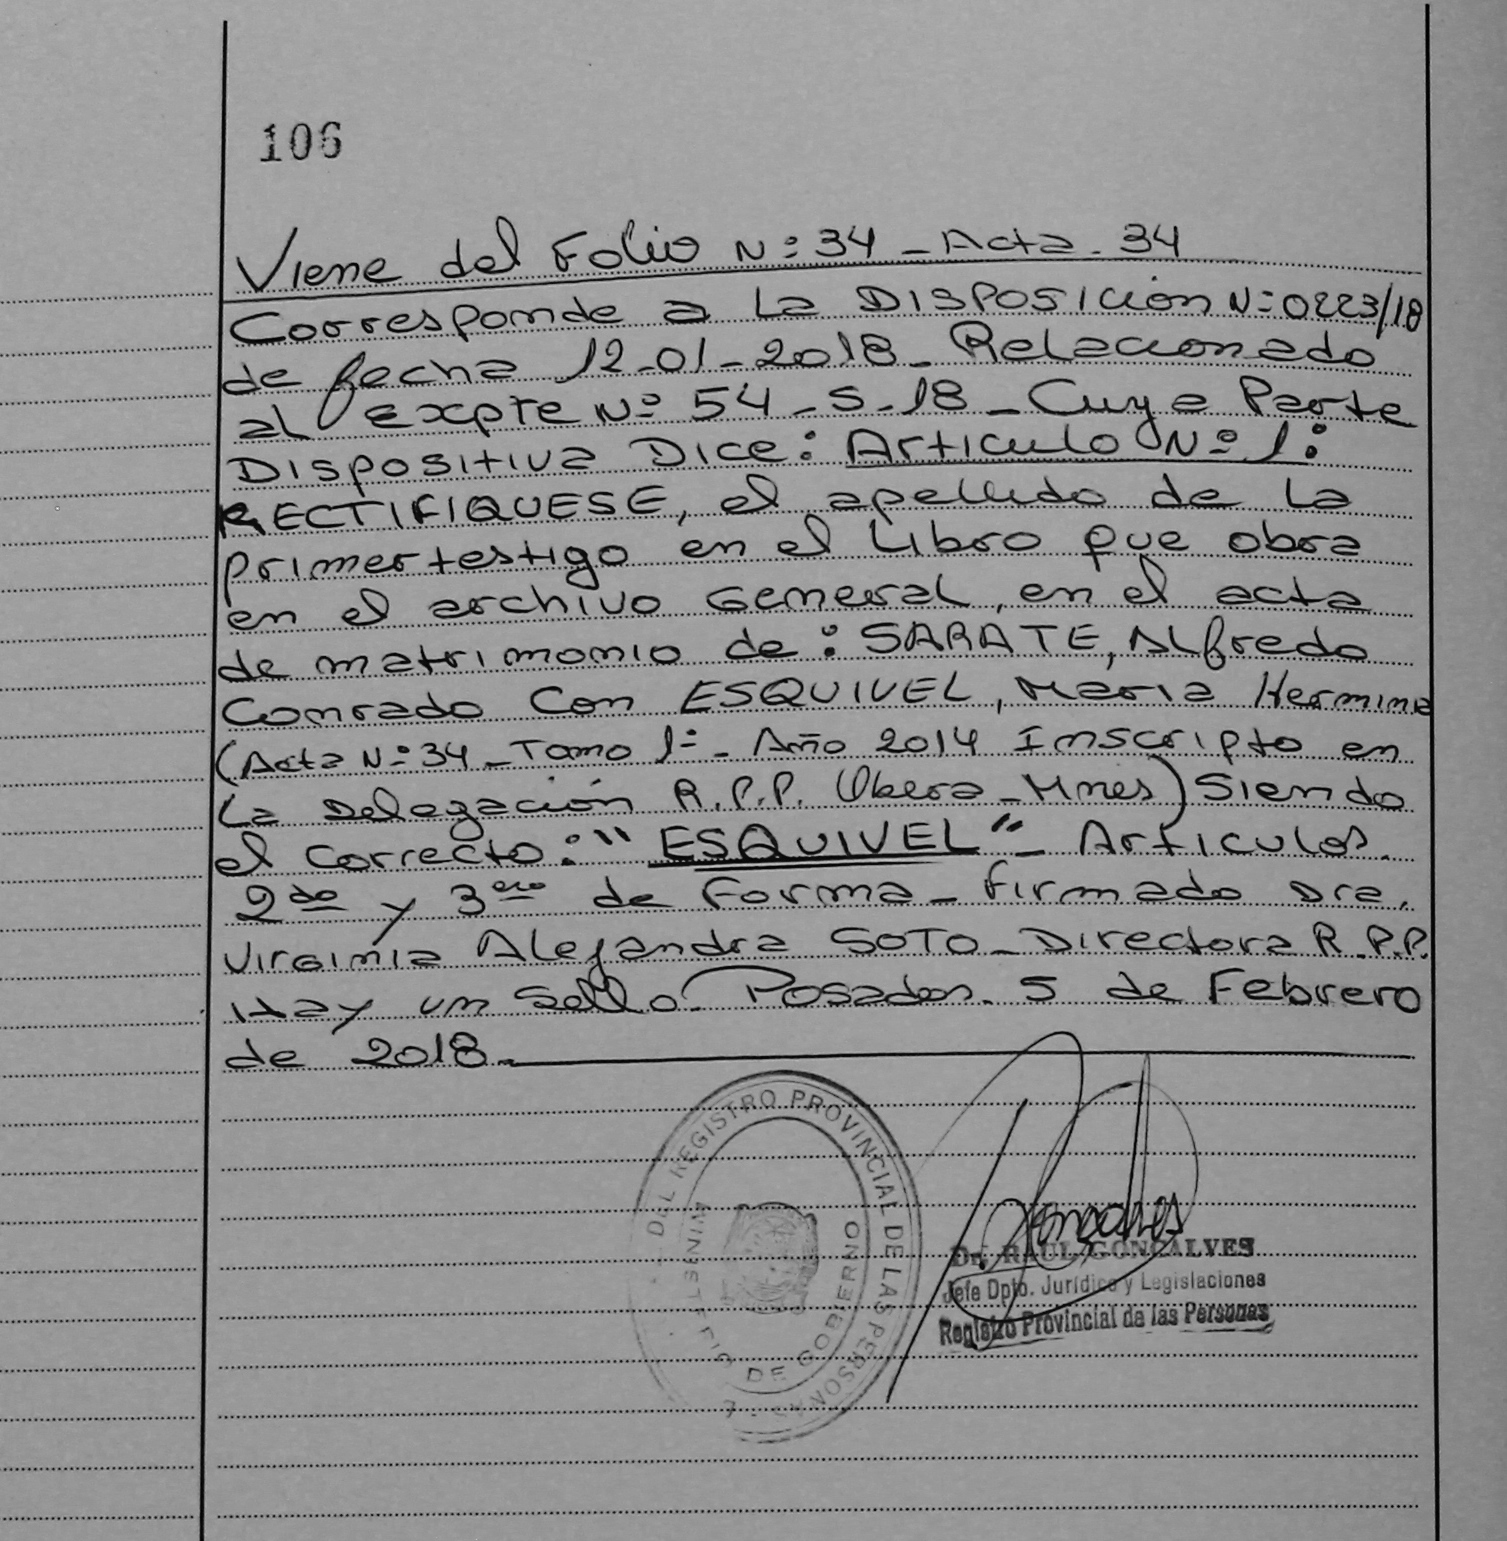 106
Viene del Folio N: 34 - Acta. 34
Corresponde a La DISPOSICIÓN N: 0223/18
de fecha 12-01-2018- Relacionado
al Expte Nº 54-S-18- Cuya Parte
DISPOSITIVA DICE: Articulo Nº 1:
RECTIFIQUESE, el apellido de La
primer testigo en el Libro que obra
en el archivo General, en el acta
de matrimonio de: SARATE, Alfredo
Conrado Con ESQUIVEL, Maria Herminia
(Acta Nº 34 - Tomo 1º - Año 2014 Inscripto en
La Delegación R.P.P. Obera - Mnes) Siendo
el Correcto: "ESQUIVEL" - Articulos.
2do y 3ero de Forma - firmado Dra.
Virginia Alejandra SOTO - Directora R.P.P.
Hay un Sello. Posadas. 5 de Febrero
de 2018.-
DEL REGISTRO PROVINCIAL DE LAS PERSONAS
MINISTERIO DE GOBIERNO
Dr. RAUL GONCALVES
Jefe Dpto. Jurídico y Legislaciones
Registro Provincial de las Personas